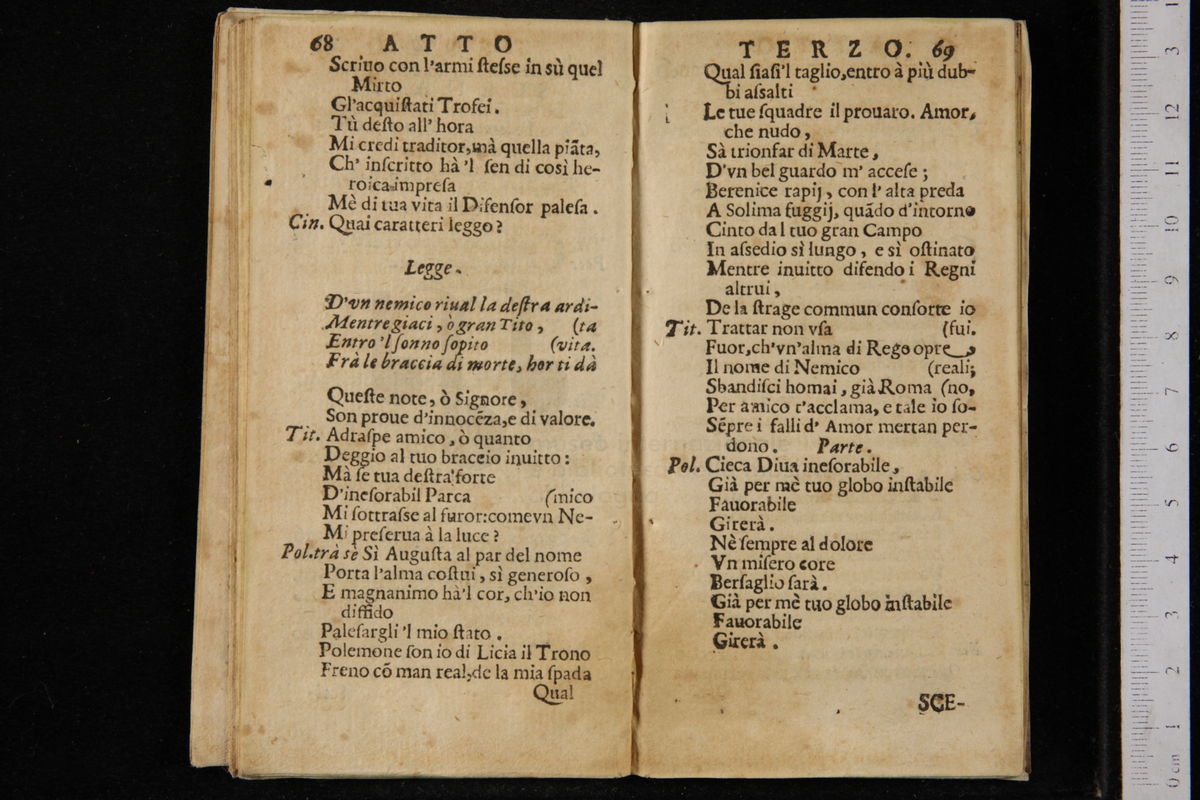 68 ATTO
Scriuo con l'armi ſteſse in sù quel
Mirto
Gl'acquiſtati Trofei.
Tù deſto all' hora
Mi credi traditor, mà quella piãta,
Ch' inſcritto hà 'l ſen di così he-
roica impreſa
Mè di tua vita il Difenſor paleſa.
Cin. Quai caratteri leggo?
Legge.
D'vn nemico riual la deſtra ardi-
Mentre giaci, ò gran Tito, (ta
Entro 'l ſonno ſopito (vita.
Frà le braccia di morte, hor ti dà
Queſte note, ò Signore,
Son proue d'innocẽza, e di valore.
Tit. Adraſpe amico, ò quanto
Deggio al tuo braccio inuitto:
Mà ſe tua deſtra forte
D'ineſorabil Parca (mico
Mi ſottraſse al furor: come vn Ne-
Mi preſerua à la luce?
Pol. trà sè Sì Auguſta al par del nome
Porta l'alma coſtui, sì generoſo,
E magnanimo hà'l cor, ch'io non
diffido
Paleſargli 'l mio ſtato.
Polemone ſon io di Licia il Trono
Freno cõ man real, de la mia ſpada
Qual
TERZO. 69
Qual ſiaſi'l taglio, entro à più dub-
bi aſsalti
Le tue ſquadre il prouaro. Amor,
che nudo,
Sà trionfar di Marte,
D'vn bel guardo m' acceſe;
Berenice rapij, con l' alta preda
A Solima fuggij, quãdo d'intorno
Cinto dal tuo gran Campo
In aſsedio sì lungo, e sì oſtinato
Mentre inuitto difendo i Regni
altrui,
De la ſtrage commun conſorte io
Tit. Trattar non vſa (fui.
Fuor, ch'vn'alma di Rege opre
Il nome di Nemico (reali;
Sbandiſci homai, già Roma (no,
Per amico t'acclama, e tale io ſo-
Sẽpre i falli d' Amor mertan per-
dono. Parte.
Pol. Cieca Diua ineſorabile,
Già per mè tuo globo inſtabile
Fauorabile
Girerà.
Nè ſempre al dolore
Vn miſero core
Berſaglio ſarà.
Già per mè tuo globo inſtabile
Fauorabile
Girerà.
SCE-
0 cm 1 2 3 4 5 6 7 8 9 10 11 12 3